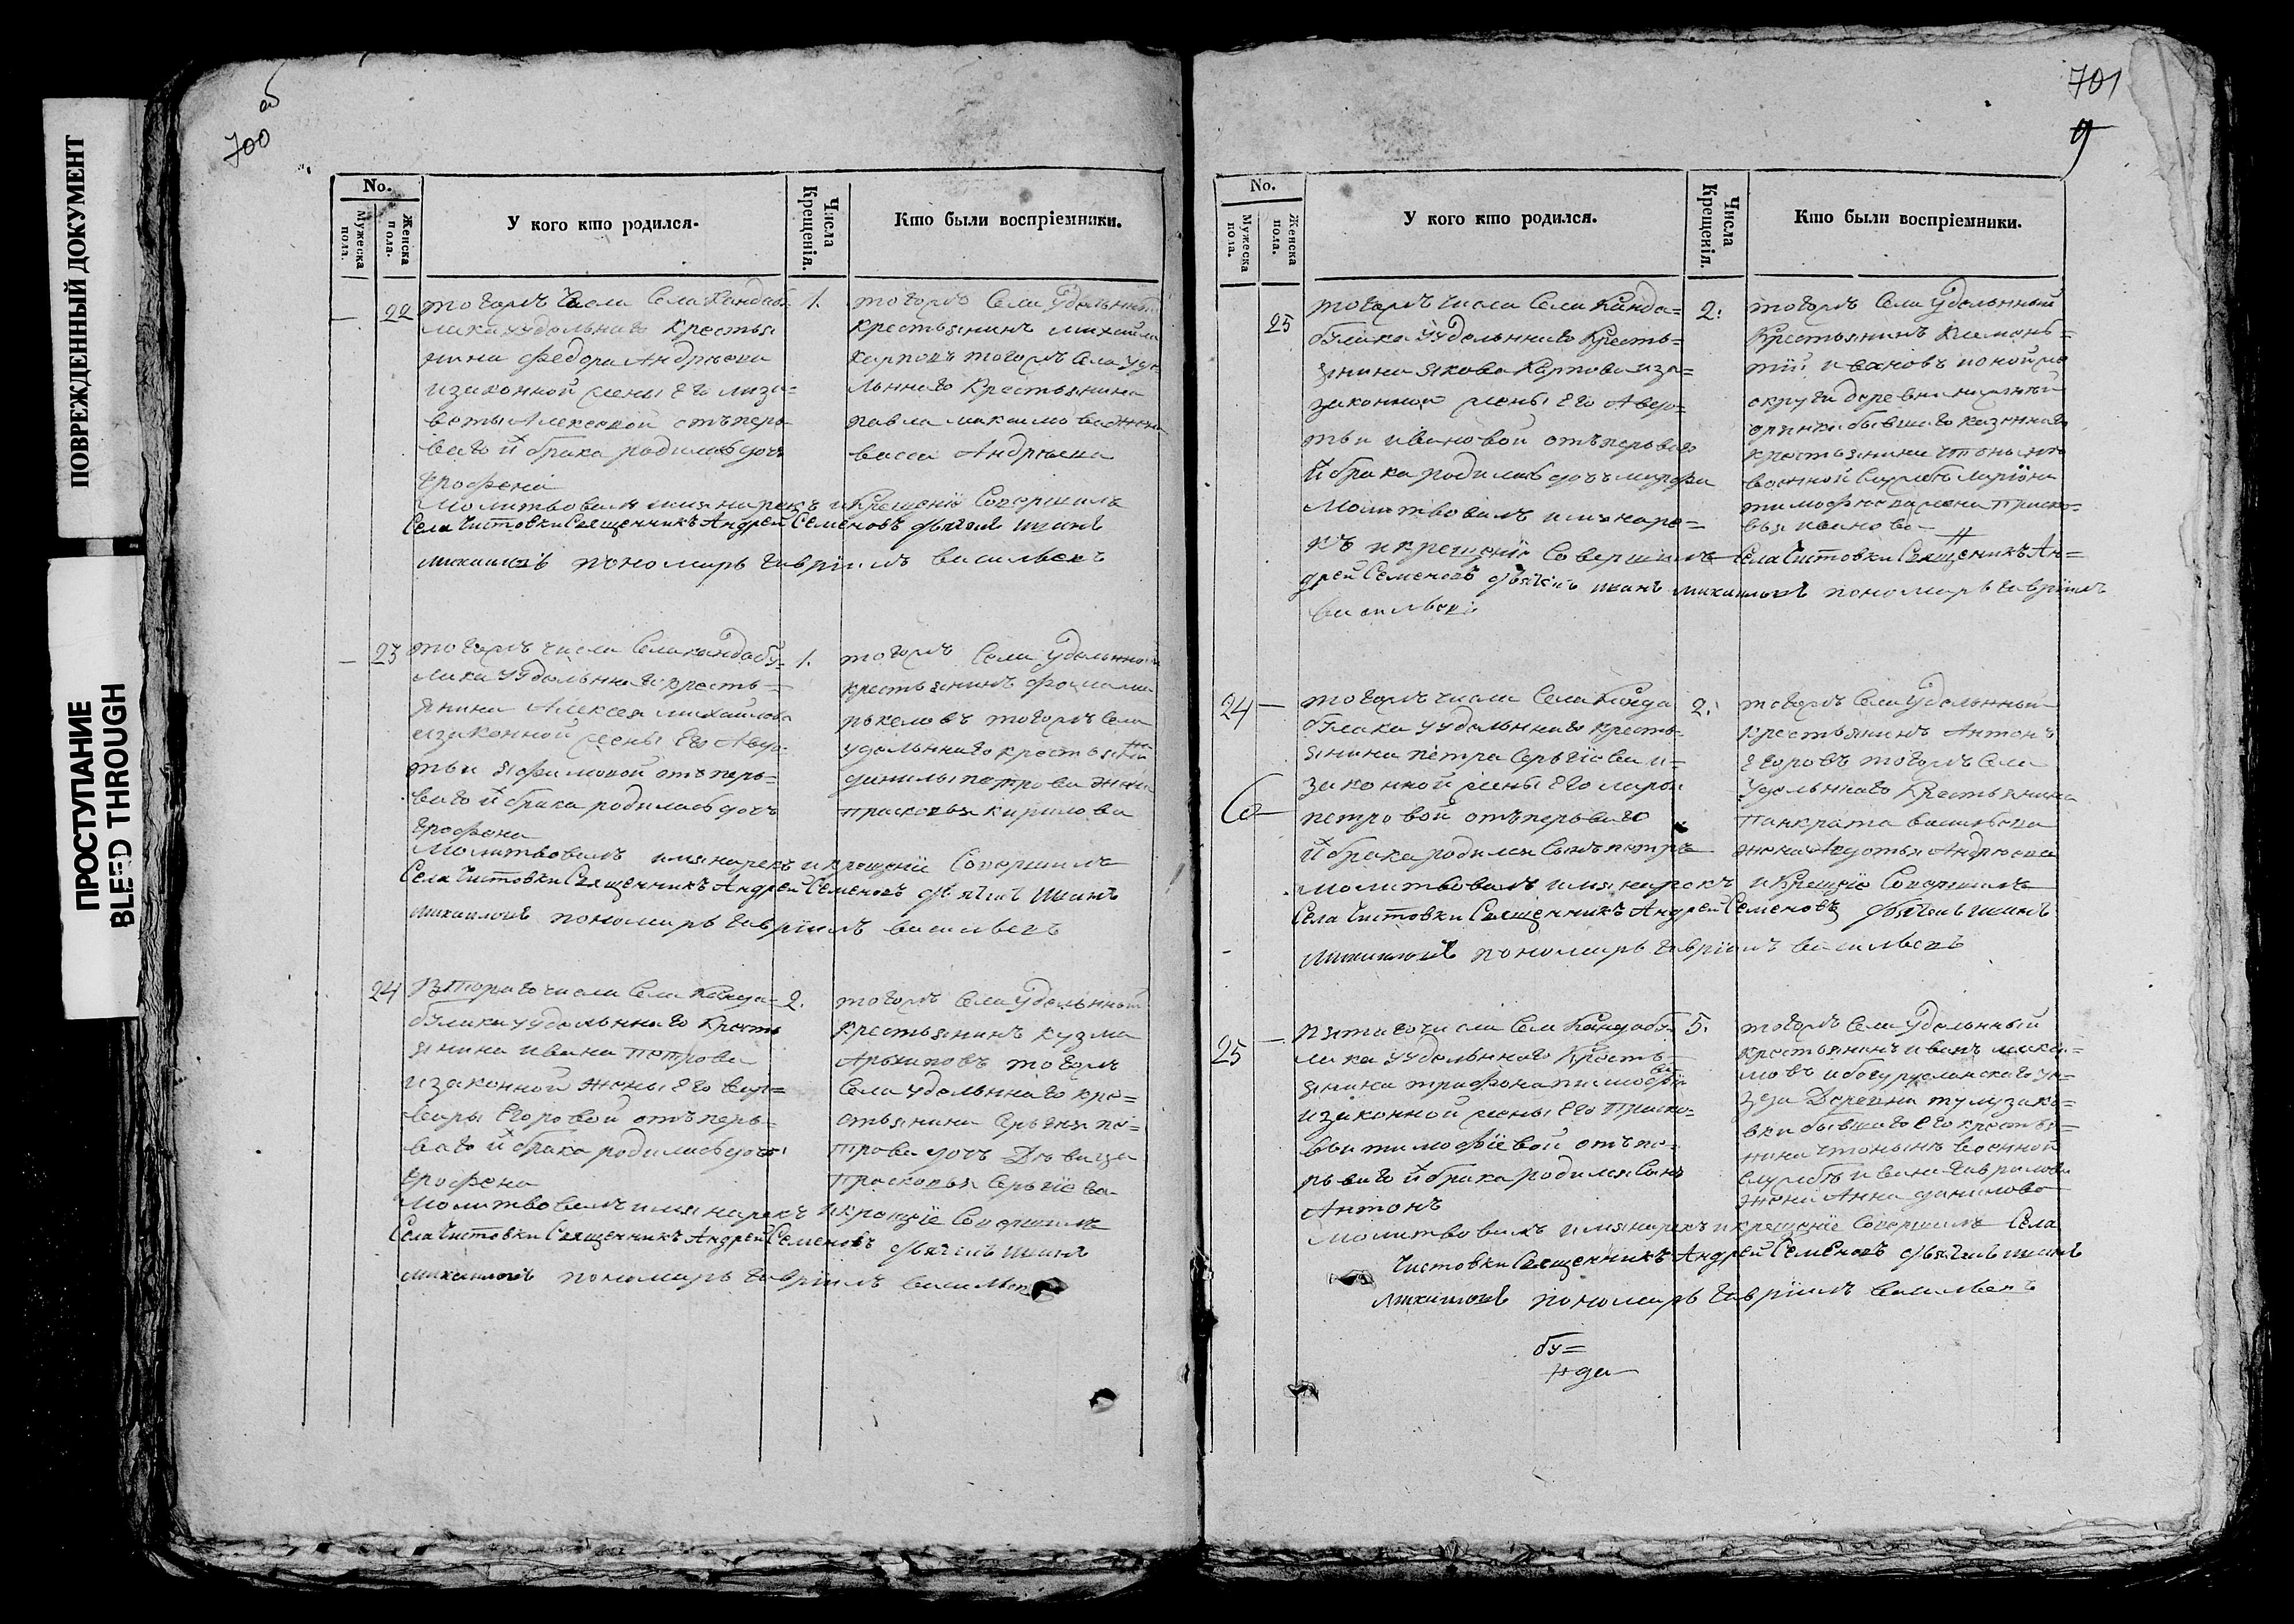 ПОВРЕЖДЕННЫЙ ДОКУМЕНТ
ПРОСТУПАНИЕ
BLEED THROUGH
об
700
No.
Мужеска пола.
Женска пола.
У кого кто родился.
Числа Крещенія.
Кто были воспріемники.
22
тогожъ числа Села Кандаб
лика удѣльнаго крестья
нина Федора Андрѣева
и законной жены его лиза=
веты Алексѣвой отъ перь
ваго й брака родилась дочь
Ерофена
1.
тогожъ Села удѣльный
крестьянинъ михайла
карповъ тогожъ Села удѣ
льннаго крестьянина
павла максимова жена
васса Андрѣева
молитвовалъ имя нарекъ и крещеніе Совершилъ
Села Чистовки Священникъ Андрей Семеновъ дьячекъ иванъ
михаиловъ пономарь гавріилъ васильевъ
23
тогожъ числа Села кандабу=
лака удѣльннаго кресть=
янина Алексея михайлова
и законной жены его Авдо=
тьи яфимовой отъ перь=
ваго й брака родилась дочь
Ерофена
1.
тогожъ Села удѣльнной
крестьянинъ
тогожъ Села
удѣльннаго крестьяни
данилы петрова жена
прасковья кирилова
молитвовалъ имя нарекъ и крещеніе Совершилъ
Села Чистовки Священникъ Андрей Семеновъ дьячекъ иванъ
михаиловъ пономарь гавріилъ васильевъ
24
Втораго числа Села Канда=
булака удѣльннаго кресть
янина ивана петрова
и законной жены его вар=
вары Егоровой отъ перь=
ваго й брака родилась дочь
Ерофена
2.
тогожъ Села удѣльнный
крестьянинъ кузма
Архиповъ тогожъ
Села удѣльннаго кре=
стьянина Сергѣя пе=
трова дочь Дѣвица
прасковья Сергіева
молитвовалъ имя нарекъ и крещеніе Совершилъ
Села Чистовки Священникъ Андрей Семеновъ дьячекъ иванъ
михаиловъ пономарь гавріилъ василье
701
9
No.
Мужеска пола.
Женска пола.
У кого кто родился.
Числа Крещенія.
Кто были воспріемники.
25
тогожъ числа Села Канда=
булака удѣльннаго кресть=
янина якова Карпова и за=
законной жены его Авдо=
тьи ивановой отъ перьваго
й брака родилась дочь марфа
2.
тогожъ Села удѣльнный
крестьянинъ климонь=
тій ивановъ
округи деревни
бывшаго казеннаго
крестьянина что нынѣ
военной службѣ лариона
тимофѣева жена праско=
вья иванова
молитвовалъ имя наре=
къ и крещеніе Совершилъ Села Чистовки Священникъ Ан=
дрей Семеновъ дьячекъ иванъ михаиловъ пономарь гавріилъ
васильевъ
24
тогожъ числа Села Канда
булака удѣльннаго кресть
янина петра Сергіева и=
законной жены его марьи
петровой отъ перьваго
й брака родился Сынъ петръ
2.
тогожъ Села удѣльнный
крестьянинъ Антонъ
Егоровъ тогожъ Села
удѣльннаго крестьянина
панкрата васильева
жена Авдотья Андрѣева
молитвовалъ имя нарекъ и крещеніе Совершилъ
Села Чистовки Священникъ Андрей Семеновъ дьячекъ иванъ
михаиловъ пономарь гавріилъ васильевъ
25
пятаго числа Села Кандабу
лака удѣльннаго кресть=
янина трифона тимофѣй
ва
и законной жены его праско=
вьи тимофіевой отъ пе=
рьваго й брака родился Сынъ
Антонъ
5.
тогожъ Села удѣльнный
крестьянинъ иванъ макси=
мовъ и бугурусланскаго уѣ=
зда Деревни
вки бывшаго его крестья=
нина что нынѣ военной
службѣ ивана гаврилова
жена Анна данилова
молитвовалъ имя нарекъ и крещеніе Совершилъ Села
Чистовки Священникъ Андрей Семеновъ дьячекъ иванъ
михаиловъ пономарь гавріилъ васильевъ
бу=